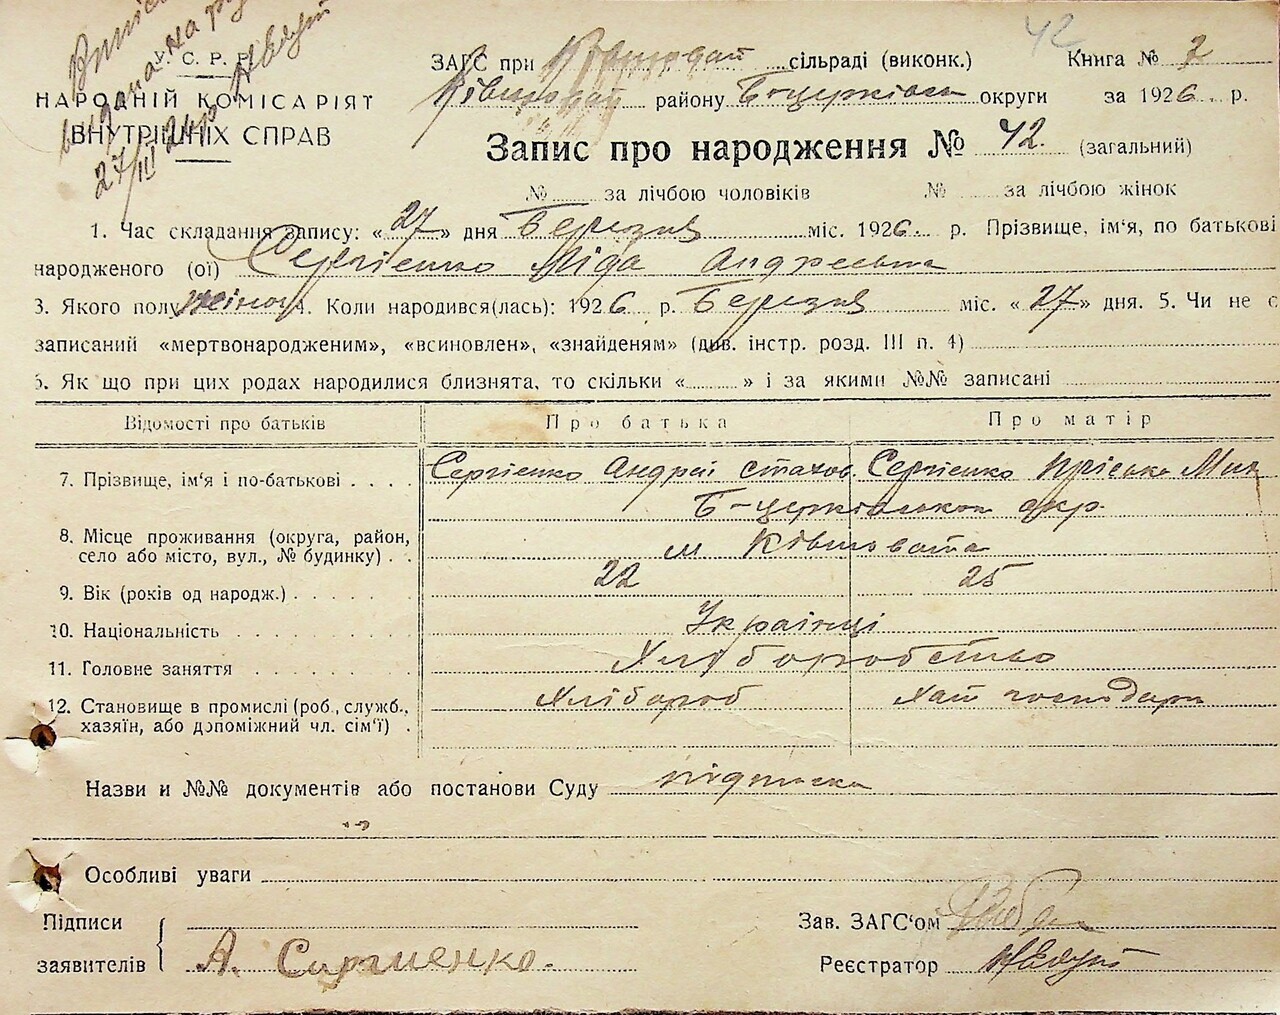 42
У. С. Р. Р.
НАРОДНІЙ КОМІСАРІЯТ
ВНУТРІШНІХ СПРАВ
видана на
27/III
ЗАГС при сільраді (виконк.) Книга № 2
району Б-церківськ округи за 1926 р.
Запис про народження № 42. (загальний)
№ за лічбою чоловіків № за лічбою жінок
1. Час складання запису: «27» дня Березня міс. 1926 р. Прізвище, ім'я, по батькові
народженого (ої) Сергієнко Ліда Андреевна
3. Якого полу жіноч 4. Коли народився(лась): 1926 р. Березня міс. «27» дня. 5. Чи не є
записаний «мертвонародженим», «всиновлен», «знайденям» (див. інстр. розд. III п. 4)
6. Як що при цих родах народилися близнята, то скільки « » і за якими №№ записані
Відомості про батьків Про батька Про матір
7. Прізвище, ім'я і по-батькові Сергієнко Андрей Стахов. Сергієнко Пріська
Б-церківськой окр.
8. Місце проживання (округа, район,
село або місто, вул., № будинку) м Ківшовата
9. Вік (років од народж.) 22 25
10. Національність Українці
11. Головне заняття Хліборобство
12. Становище в промислі (роб., служб.,
хазяїн, або допоміжний чл. сім'ї) Хлібороб Хат господарк
Назви и №№ документів або постанови Суду підписка
Особливі уваги
Підписи
заявителів А. Сиргиенко.
Зав. ЗАГС'ом
Реєстратор